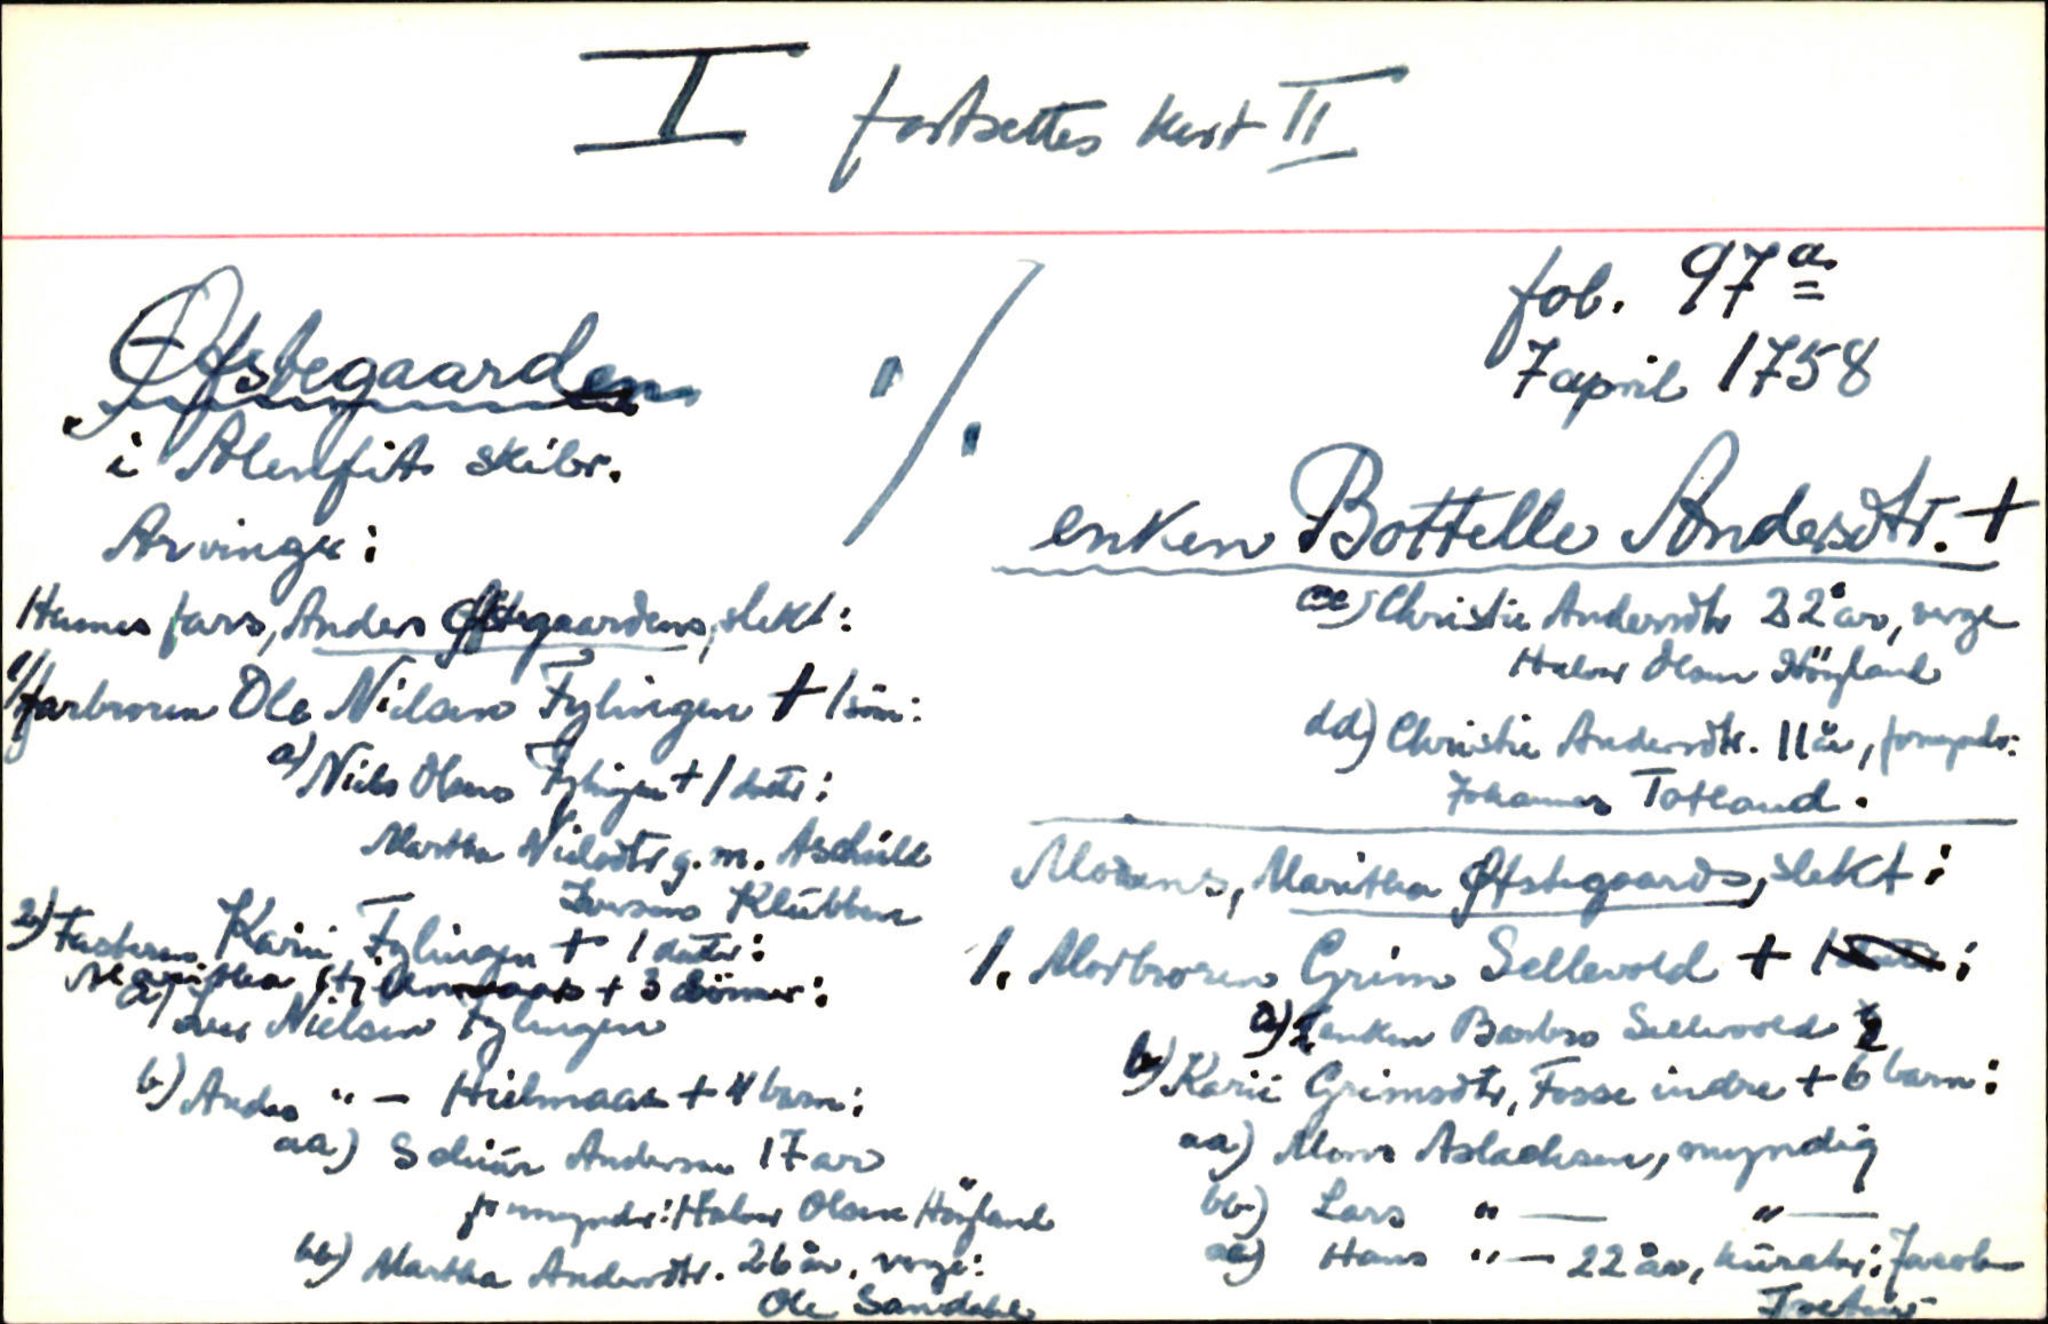 I fortsettes kort II
Øfstegaarden
i Alenfit skibr.
Arvinger:
Hennes fars, Anders Øfstegaardens, slekt:
1/ farbroren Ole Nielsen Fylingen + 1 sön:
a) Niels Olsens Fylingen + 1 dotter:
Martha Nielsdtr g. m. Aschild
Iversens Klübben
2) Fasteren Karii Fylingen + 1 datter:
Maritha + 3 sönner:
a) Iver Nielsen Fylingen
b) Anders " — Hielmaas + 4 barn:
aa) Schiür Andersen 17 aar
formynder: Halvor Olsen Höyland
bb) Martha Andersdtr. 26 år, verge:
Ole Sandahl
%
fol. 97a
7 april 1758
enken Bottelle Andersdtr. +
cc) Christie Andersdtr 22 år, verge
Halvor Olsen Höyland
dd) Christie Andersdtr. 11 år, formynder:
Johannes Totland.
Morens, Maritha Øfstegaards, slekt:
1. Morbroren Grim Sellevold + 1 :
a) enken Barbro Sellevold
b) Karii Grimsdtr, Fosse indre + 6 barn:
aa) Mons Aslachsen, myndig
bb) Lars " — " —
cc) Hans " — 22 år, kürator: Jacob
Tveten